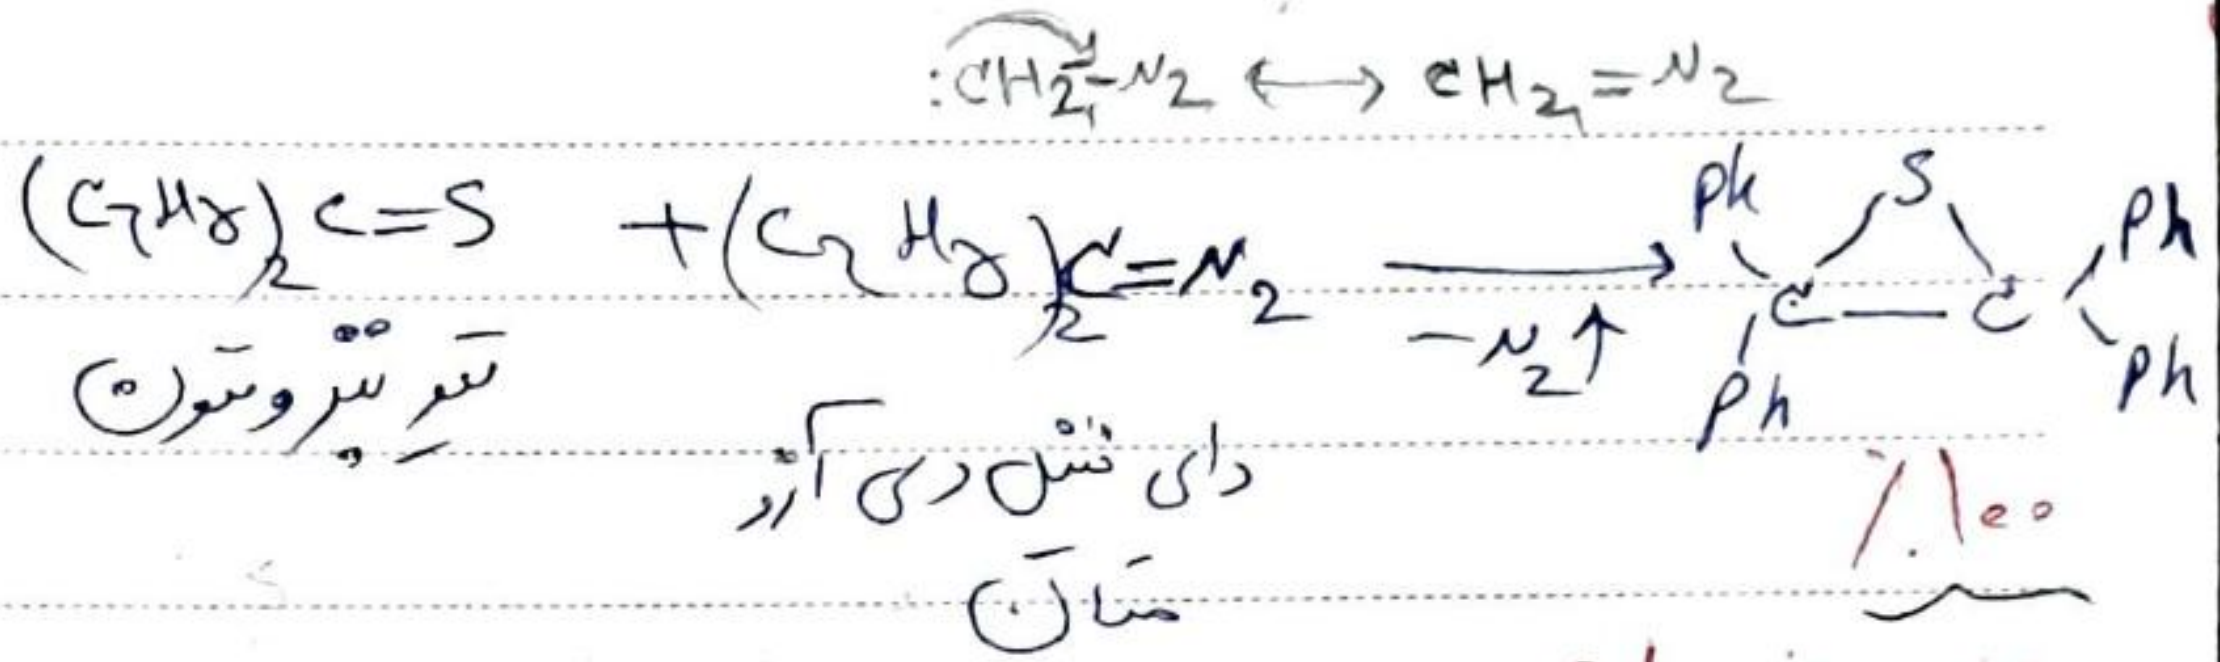 :CH₂⁻-N₂ ↔ CH₂=N₂
(C₆H₅)₂C=S + (C₆H₅)₂C=N₂ → -N₂↑ Ph Ph C S C Ph Ph
دای فنیل دی آزو
متان
٪۱۰۰